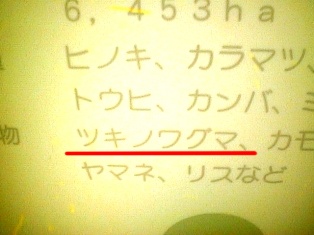 6，453ha
ヒノキ、カラマツ、
トウヒ、カンバ、ミ
物 ツキノワグマ、カモ
ヤマネ、リスなど